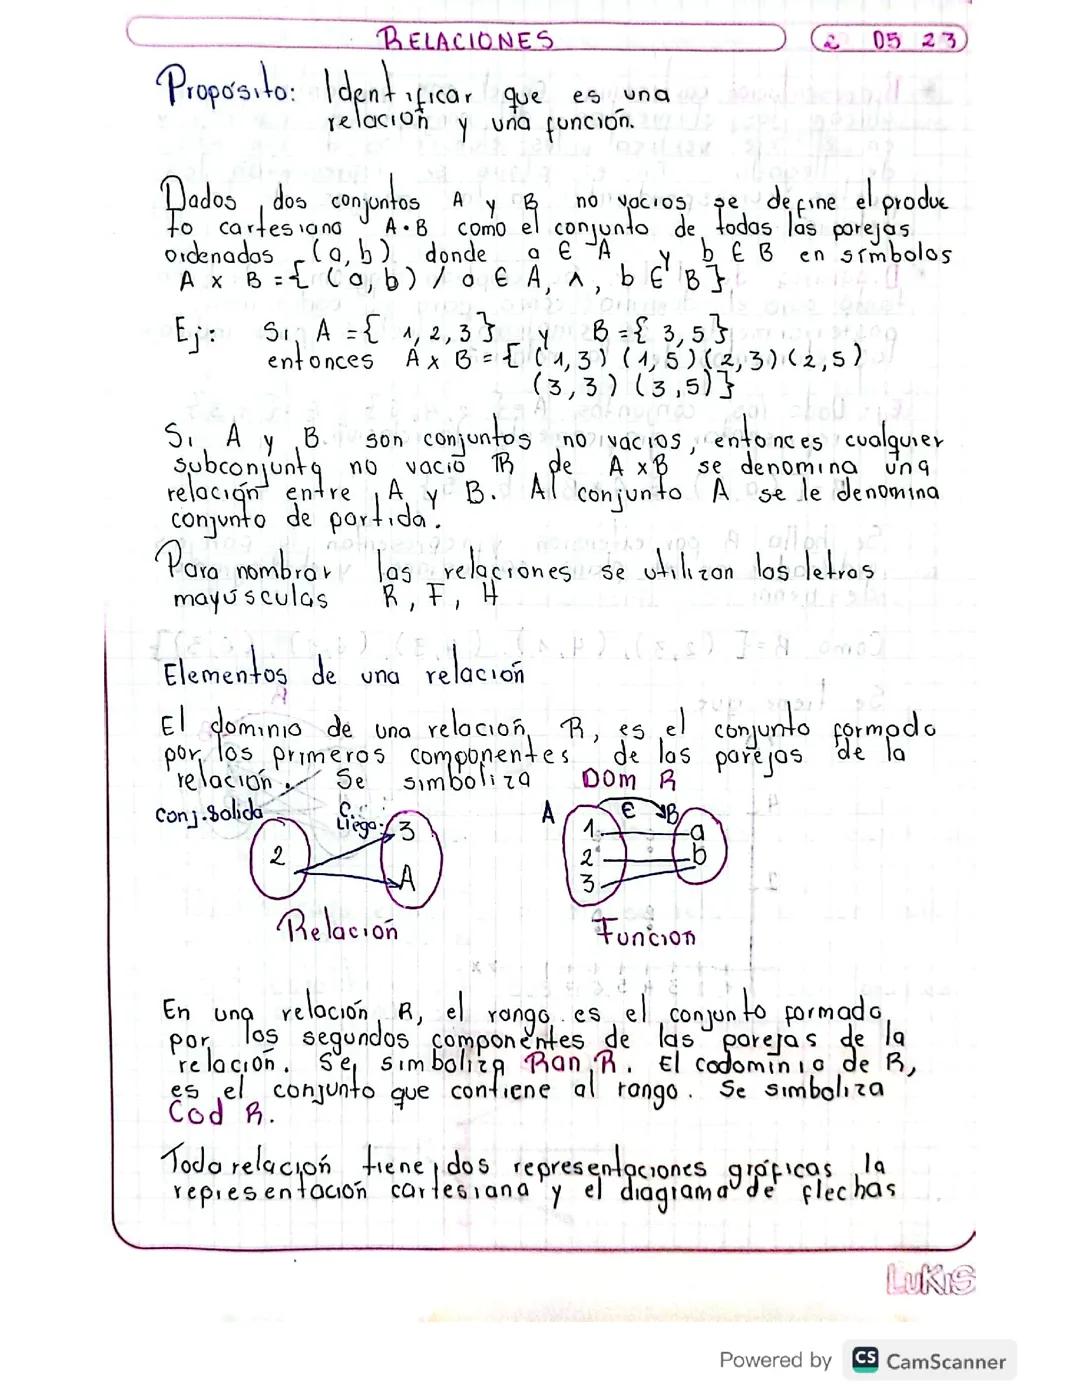 RELACIONES
2 05 23
Propósito: Identificar que es una
relación y una función.
Dados dos conjuntos A y B no vacios se define el produc
to cartesiano A·B como el conjunto de todas las parejas
ordenadas (a,b) donde a ∈ A y b ∈ B en símbolos
A x B = { (a, b) / a ∈ A, ∧, b ∈ B }
Ej: Si A = { 1, 2, 3 } y B = { 3, 5 }
entonces A x B = { (1,3) (1,5) (2,3) (2,5)
(3,3) (3,5) }
Si A y B son conjuntos no vacios, entonces cualquier
subconjunto no vacio R de A x B se denomina una
relación entre A y B. Al conjunto A se le denomina
conjunto de partida.
Para nombrar las relaciones se utilizan las letras
mayúsculas R, F, H
Elementos de una relación
El dominio de una relación, R, es el conjunto formado
por los primeros componentes de las parejas de la
relación. Se simboliza Dom R
Conj. Salida
C. Llega.
2
3
A
Relación
A
E
B
1
2
3
a
b
Función
En una relación R, el rango es el conjunto formado
por los segundos componentes de las parejas de la
relación. Se simboliza Ran R. El codominio de R,
es el conjunto que contiene al rango. Se simboliza
Cod R.
Toda relación tiene dos representaciones gráficas la
representación cartesiana y el diagrama de flechas
LuKiS
Powered by CS CamScanner